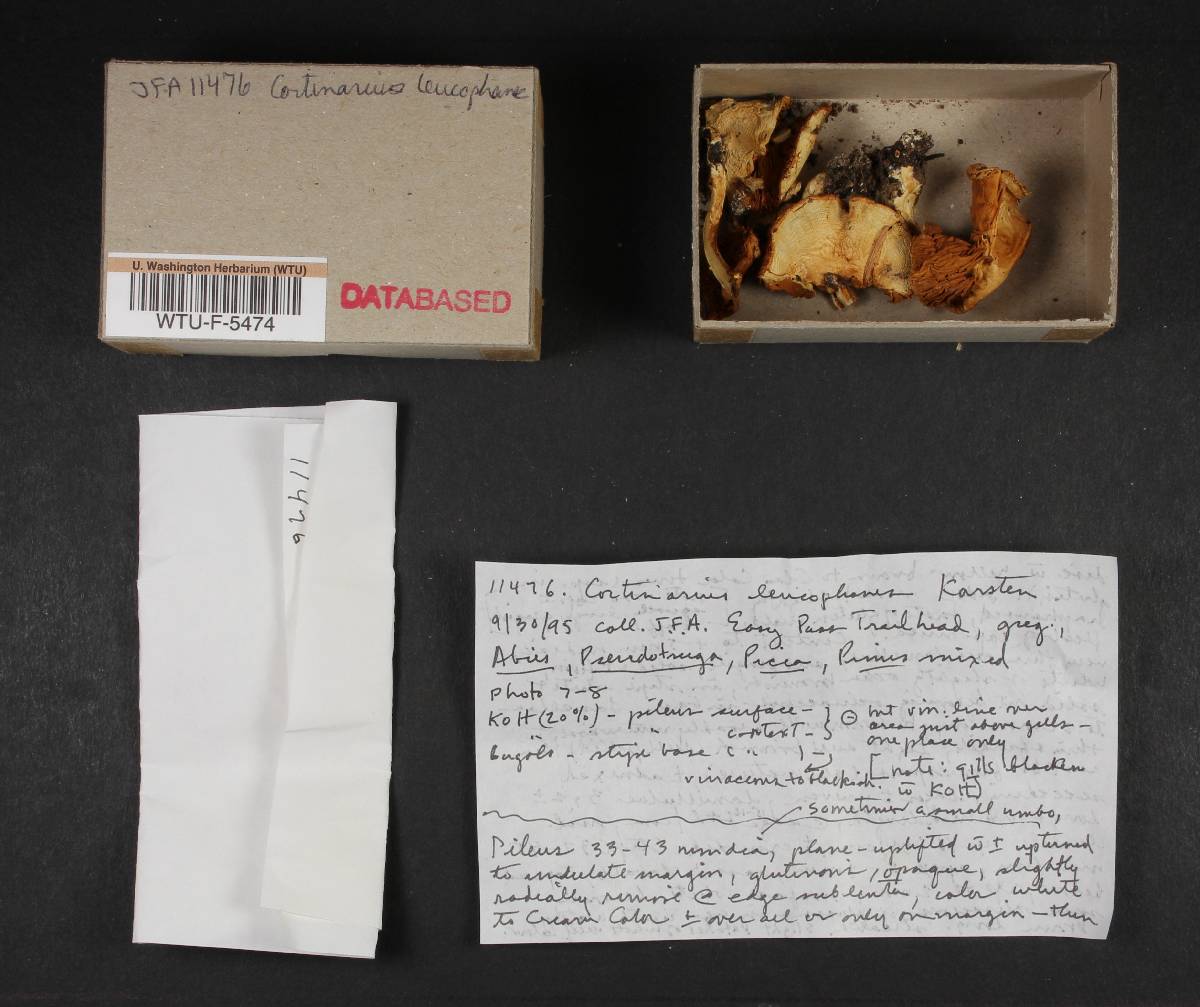 JFA 11476 Cortinarius leucophane
U. Washington Herbarium (WTU)
WTU-F-5474
DATABASED
11476
11476. Cortinarius leucophanes Karsten
9/30/95 coll. J.F.A. Easy Pass Trailhead, greg.,
Abies, Pseudotsuga, Picea, Pinus mixed
photo 7-8
KOH (20%) - pileus surface - } ⊖ but vin. line over
" context - } area just above gills -
one place only
- stipe base ( " ) -
vinaceous to blackish. [note: gills blacken
w̄ KOH]
sometimes a small umbo,
Pileus 33-43 mm dia, plane-uplifted w̄ ± upturned
to undulate margin, glutinous, opaque, slightly
radially @ edge sublenta, color white
to Cream Color ± over all or only on margin - then